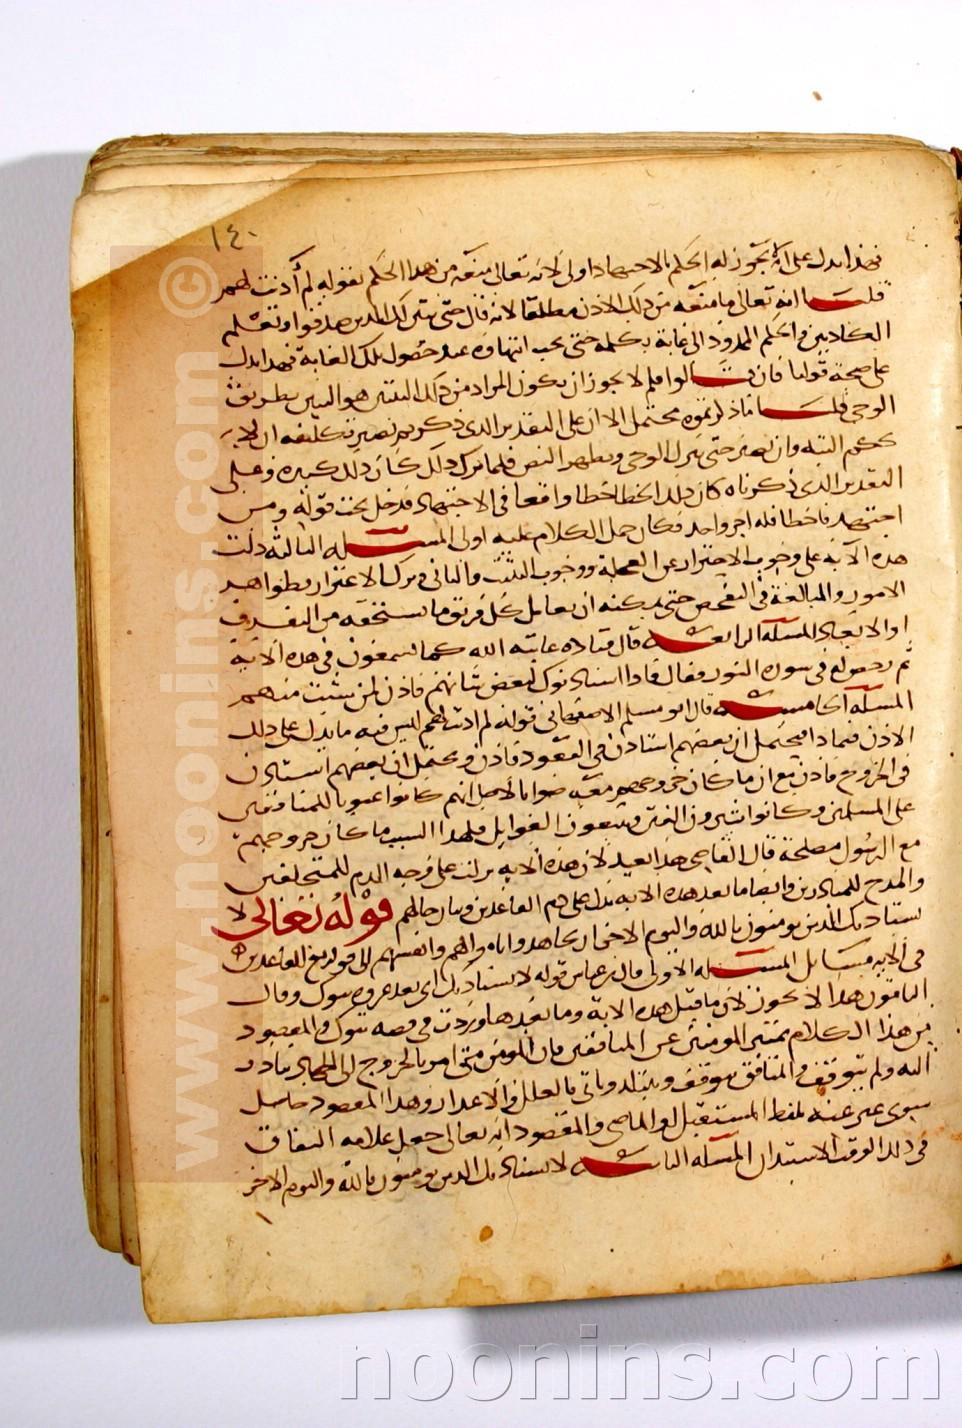 ١٤٠
فهذا يدل على انه يجوز له الحكم بالاجتهاد اولى لانه تعالى منعه من هذا الحكم بقوله لم أذنت لهم
قلنا انه تعالى ما منعه من ذلك الاذن مطلقا لانه قال حتى يتبين لك الذين صدقوا وتعلم
الكاذبين والحكم الممدود الى غاية بكلمة حتى يجب انتهاوه عند حصول تلك الغاية فهذا يدل
على صحة قولنا فان قالوا فلم لا يجوز ان يكون المراد من ذلك التبين هو التبين بطريق
الوحي قلنا ماذكرتموه محتمل الا ان على التقدير الذي ذكرتم يصير تكليفه ان لا
يحكم البتة وان يصبر حتى ينزل الوحي ويظهر النص فلما ترك ذلك كان ذلك كبيرة وعلى
التقدير الذي ذكرناه كان ذلك الخطا خطا واقعا في الاجتهاد فدخل تحت قوله ومن
اجتهد فاخطا فله اجر واحد فكان حمل الكلام عليه اولى المسئله الثالثة دلت
هذه الآية على وجوب الاحتراز عن العجلة ووجوب التثبت والتاني وترك الاغترار بظواهر
الامور والمبالغة في التفحص حتى يمكنه ان يعامل كل فريق ما يستحقه من التقريب
او الابعاد المسئلة الرابعه قال قتاده عاتبه الله كما تسمعون في هذه الآية
ثم رخص له في سورة النور فقال فاذا استاذنوك لبعض شانهم فاذن لمن شئت منهم
المسئلة الخامسه قال ابو مسلم الاصفهاني قوله لم اذنت لهم ليس فيه ما يدل على ذلك
الاذن فيماذا فيحتمل ان بعضهم استاذن في القعود فاذن ويحتمل ان بعضهم استاذن
في الخروج فاذن مع ان ما كان خروجهم معه صوابا لأجل انهم كانوا عيونا للمنافقين
على المسلمين وكانوا يثيرون الفتن ويبغون الغوايل فلهذا السبب ما كان خروجهم
مع الرسول مصلحة قال القاضي هذا بعيد لان هذه الآية نزلت على وجه الذم للمتخلفين
والمدح للمبادرين وايضا ما بعد هذه الاية يدل على ذم القاعدين وبيان حالهم قوله تعالى لا
يستاذنك الذين يومنون بالله واليوم الاخر ان يجاهدوا باموالهم وانفسهم الى قوله مع القاعدين
في الآية مسايل المسئله الاولى قال ابن عباس قوله لا يستاذنك اي بعد غزوه تبوك وقال
الباقون هذا لا يجوز لان ما قبل هذه الاية وما بعدها وردت في قصة تبوك والمقصود
من هذا الكلام تمييز المومنين عن المنافقين فان المومن متى امر بالخروج الى الجهاد بادر
اليه ولم يتوقف والمنافق يتوقف ويتبلد وياتي بالعلل والاعذار وهذا المقصود حاصل
سوى عبر عنه بلفظ المستقبل او الماضي والمقصود انه تعالى جعل علامه النفاق
في ذلك الوقت الاستيذان المسئله الثانيه لا يستاذنك الذين يومنون بالله واليوم الاخر
www.noonins.com ©
noonins.com